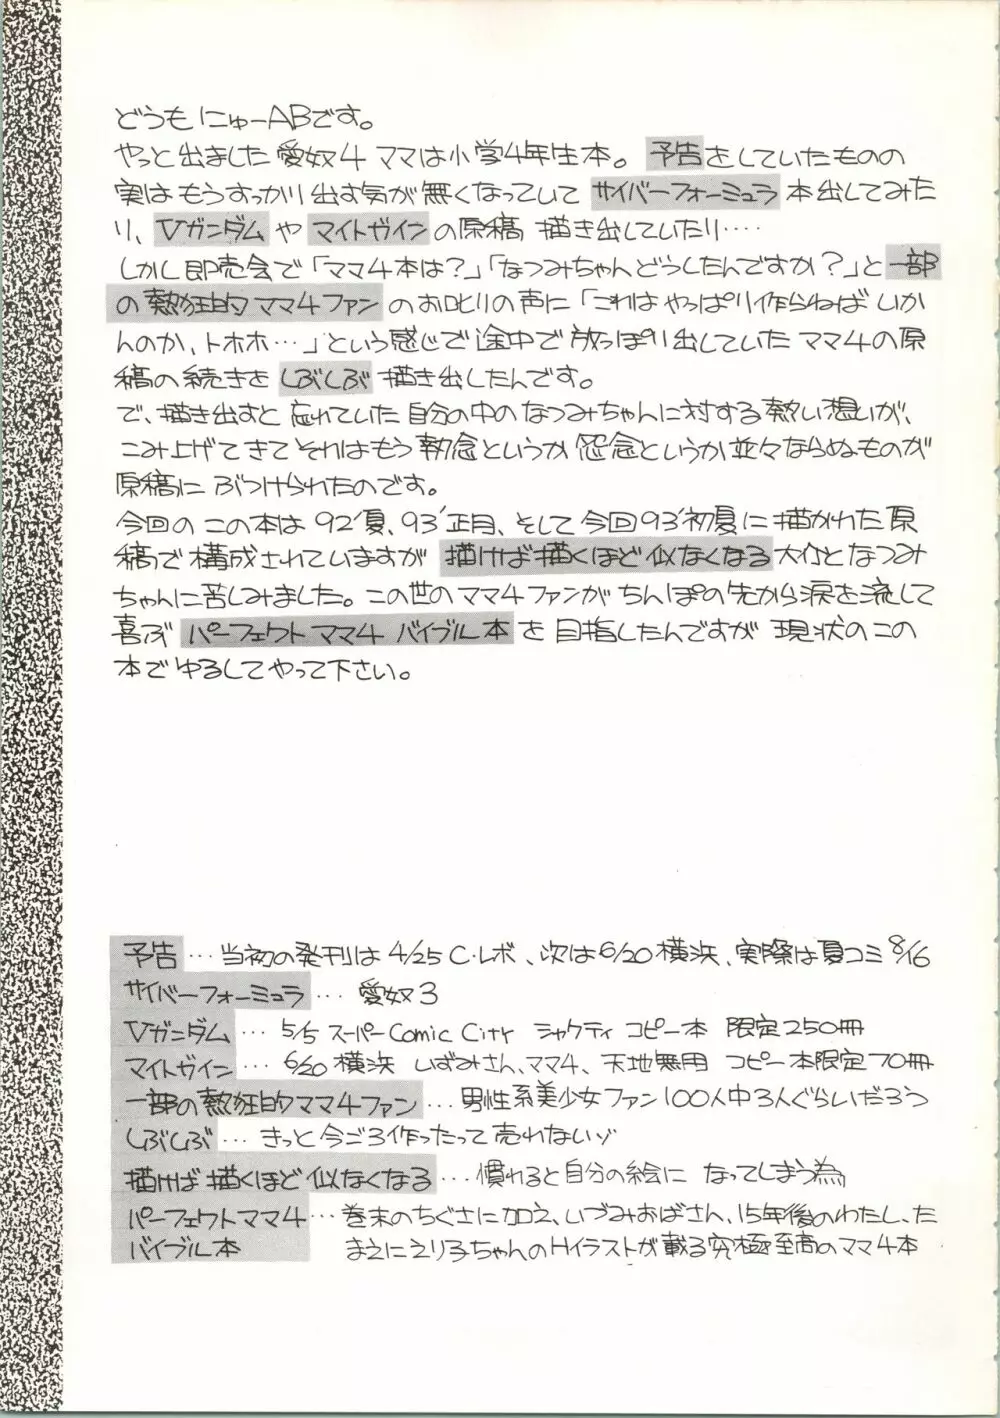 どうも にゅーABです。
やっと出ました 愛奴4 ママは小学4年生本。予告をしていたものの
実は もうすっかり 出す気が 無くなっていて サイバーフォーミュラ 本出してみた
り、Vガンダム や マイトガイン の原稿 描き出していたり‥‥
しかし即売会で「ママ4本は?」「なつみちゃんどうしたんですか?」と 一部
の熱狂的ママ4ファン のお叱りの声に「これは やっぱり作らねば いか
んのか、トホホ…」という感じで途中で 放っぽり出していた ママ4の原
稿の続きを しぶしぶ 描き出したんです。
で、描き出すと 忘れていた 自分の中の なつみちゃんに対する熱い想いが、
こみ上げてきて それはもう 執念というか 怨念というか並々ならぬものが
原稿に ぶつけられたのです。
今回の この本は 92'夏、93'正月、そして 今回93'初夏に描かれた原
稿で 構成されていますが 描けば描くほど似なくなる 大介となつみ
ちゃんに苦しみました。この世のママ4ファンが ちんぽの先から涙を流して
喜ぶ パーフェクト ママ4 バイブル本 を 目指したんですが 現状のこの
本で ゆるしてやって下さい。
予告 … 当初の発刊は 4/25 C・レボ、次は6/20横浜、実際は夏コミ8/16
サイバーフォーミュラ … 愛奴3
Vガンダム … 5/5 スーパー Comic City シャクティ コピー本 限定250冊
マイトガイン … 6/20 横浜 いずみさん、ママ4、天地無用 コピー本限定70冊
一部の熱狂的ママ4ファン … 男性系美少女ファン100人中3人ぐらいだろう
しぶしぶ … きっと今ごろ作ったって 売れないゾ
描けば描くほど似なくなる … 慣れると自分の絵に なってしまう為
パーフェクトママ4 … 巻末のちぐさに加え、いづみおばさん、15年後のわたし、た
バイブル本 まえにえり子ちゃんのHイラストが載る究極至高のママ4本